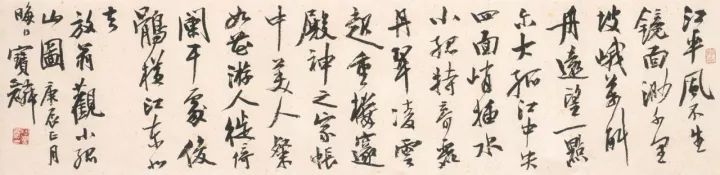 江平風不生
鏡面渺千里
坡峨萬斛
舟遠望一點
尔大孤江中央
四面峭插水
小孤特奇麗
丹翠凌雲
起重樓邃
殿神之家帳
中美人粲
如花游人徙倚
闌干處俊
鶻橫江東北
去
放翁觀小孤
山圖庚辰正月
晦日寶麟